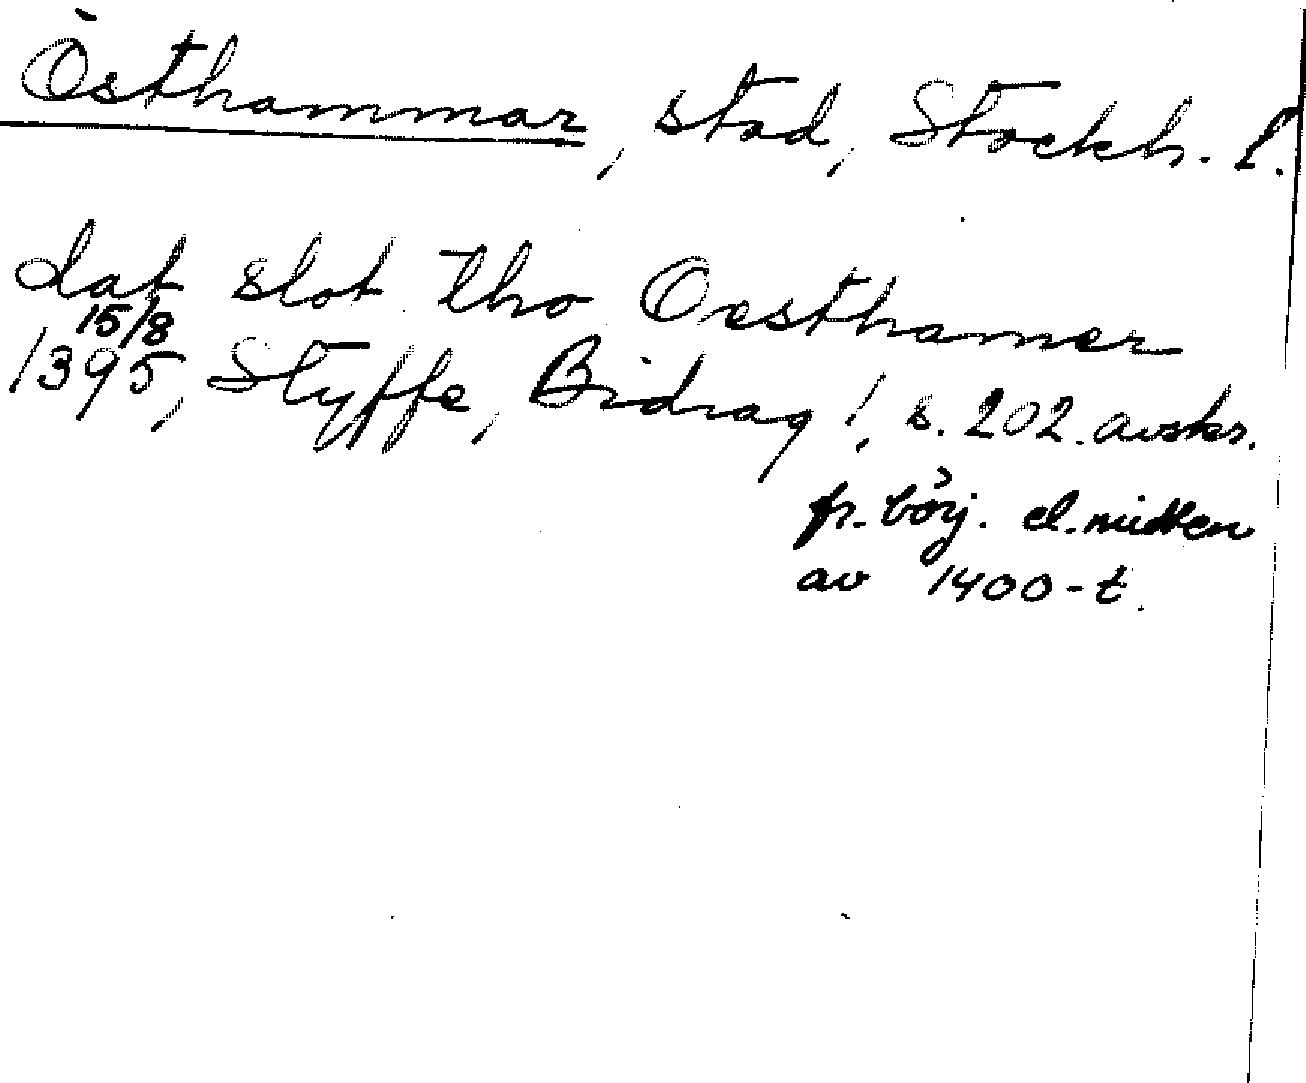 Östhammar, stad, Stockh. l.
dat slot tho Oesthamer
15/8
1395, Styffe, Bidrag 1, s. 202. avskr.
fr. börj. el. mitten
av 1400-t.